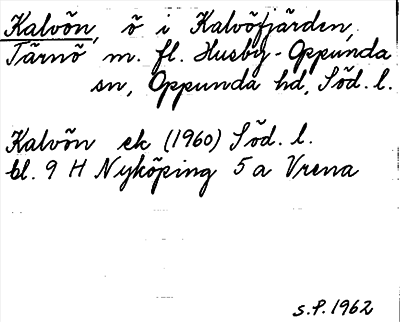 Kalvön, ö i Kalvöfjärden,
Tärnö m. fl. Husby-Oppunda
sn, Oppunda hd, Söd. l.
Kalvön ek (1960) Söd. l.
bl. 9 H Nyköping 5 a Vrena
s.P. 1962